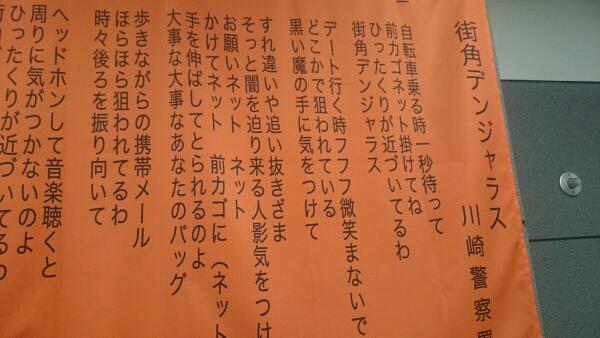 街角デンジャラス
川崎警察署
一
自転車乗る時一秒待って
前カゴネット掛けてね
ひったくりが近づいてるわ
街角デンジャラス
デート行く時フフフ微笑まないで
どこかで狙われている
黒い魔の手に気をつけて
すれ違いや追い抜きざま
そっと闇を迫り来る人影気をつけ
お願いネット ネット
かけてネット 前カゴに(ネット
手を伸ばしてとられるのよ
大事な大事なあなたのバッグ
歩きながらの携帯メール
ほらほら狙われてるわ
時々後ろを振り向いて
ヘッドホンして音楽聴くと
周りに気がつかないのよ
ひったくりが近づいてるわ